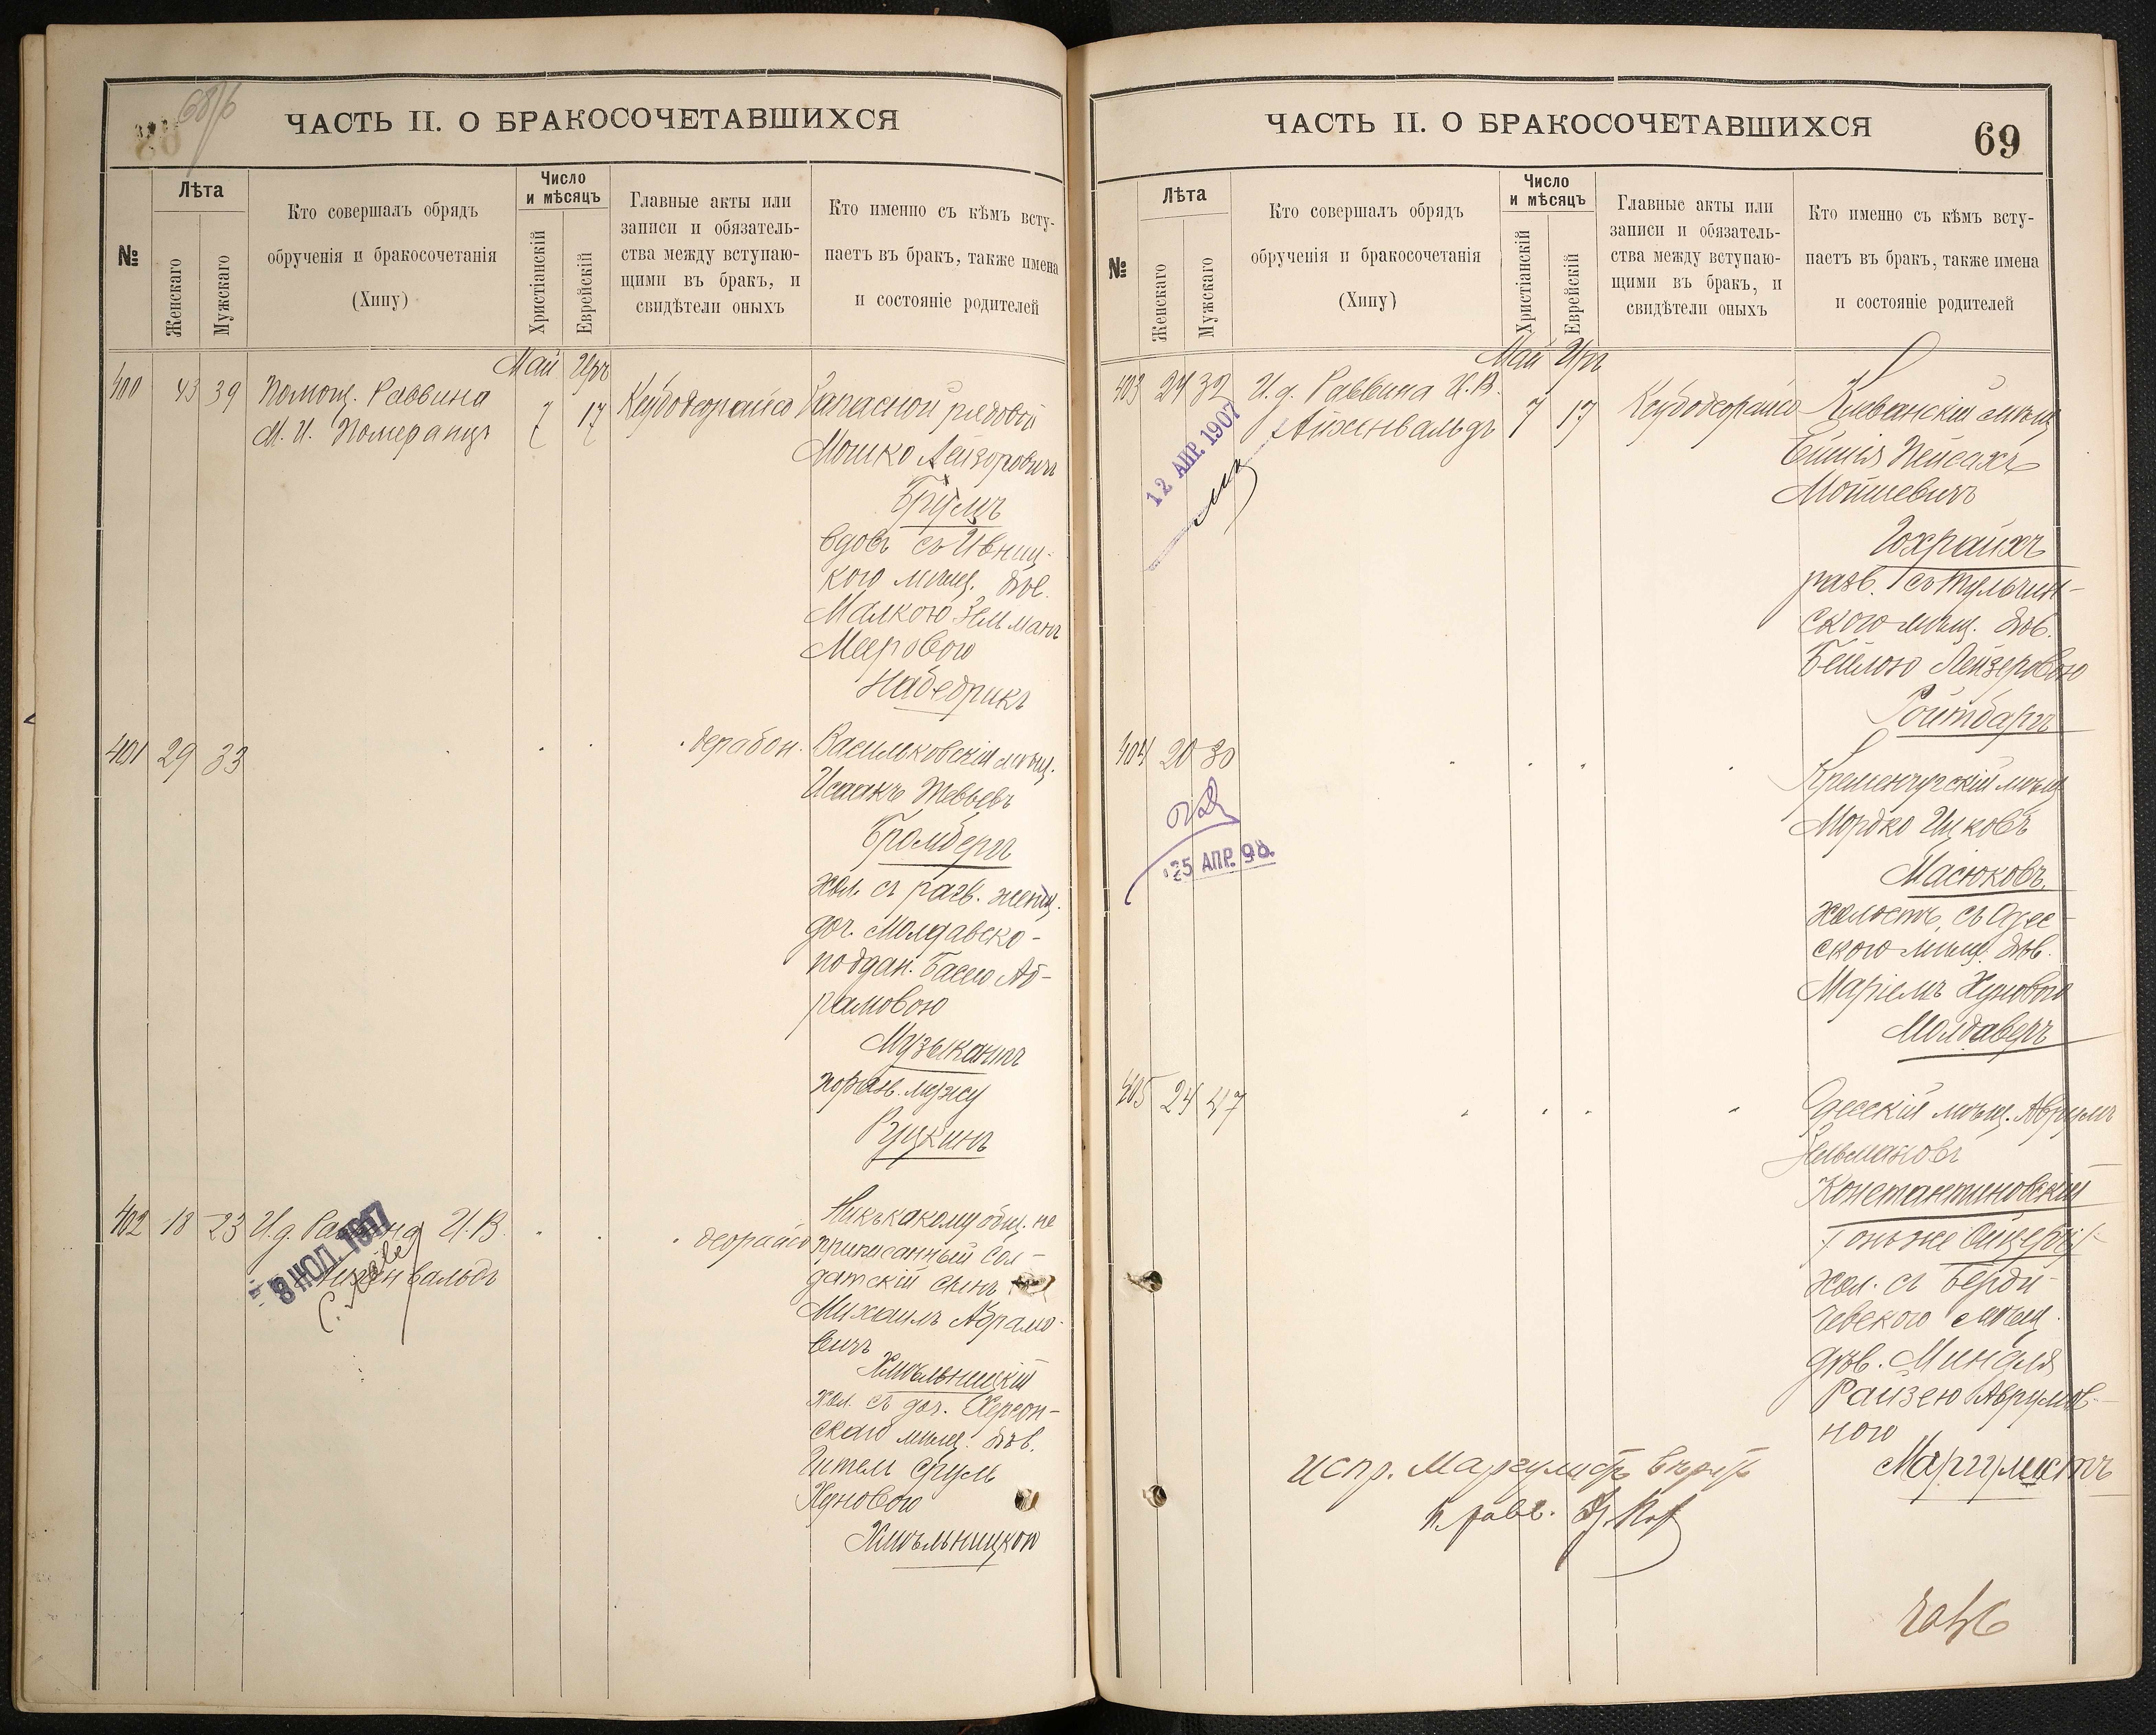 68/6
ЧАСТЬ II. О БРАКОСОЧЕТАВШИХСЯ
№
Лѣта
Женскаго
Мужскаго
Кто совершалъ обрядъ
обрученія и бракосочетанія
(Хипу)
Число
и мѣсяцъ
Христіанскій
Еврейскій
Главные акты или
записи и обязатель-
ства между вступаю-
щими въ бракъ, и
свидѣтели оныхъ
Кто именно съ кѣмъ всту-
паетъ въ бракъ, также имена
и состояніе родителей
Май Іуръ
400 43 39 Помощ. Раввина
М. И. Померанцъ
7 17
Запасной рядовой
Мошко Лейзоровичъ
Грумъ
вдовъ съ Ивниц-
кою мѣщ. дѣв.
Малкою Зельманъ
Мееровою
Набедрикъ
401 29 33
Васильковскій мѣщ.
Исаакъ Шевьевъ
Бромбергъ
хол. съ разв. женщ.
доч. Молдавско-
поддан. Басею Аб-
рамовою
Музыкантъ
по разв. мужу
Рушкинъ
402 18 23 И.д. Раввина И.В.
Айхенвальдъ
8 НОЛ. 1917
Никъ какому общ. не
приписанный Сол-
датскій сынъ
Михаилъ Абрамо-
вичъ
Хмѣльницкій
хол. съ доч. Херсон-
скаго мѣщ. дѣв.
Гитель Суль
Нуновою
Хмѣльницкою
ЧАСТЬ II. О БРАКОСОЧЕТАВШИХСЯ
69
№
Лѣта
Женскаго
Мужскаго
Кто совершалъ обрядъ
обрученія и бракосочетанія
(Хипу)
Число
и мѣсяцъ
Христіанскій
Еврейскій
Главные акты или
записи и обязатель-
ства между вступаю-
щими въ бракъ, и
свидѣтели оныхъ
Кто именно съ кѣмъ всту-
паетъ въ бракъ, также имена
и состояніе родителей
Май Іуръ
403 24 32 И.д. Раввина И.В.
Айхенвальдъ
7 17
12 АПР. 1907
Клеванскій мѣщ.
Пейсахъ
Мошкевичъ
Гохрайхъ
разв. съ Тульчин-
скою мѣщ. дѣв.
Бейлою Лейзеровою
Ройтбаргъ
404 20 30
25 АПР. 98.
Кременчугскій мѣщ.
Мордко Ицковъ
Масюковъ
холостъ, съ Одес-
скою мѣщ. дѣв.
Маріемъ Нуновою
Молдаверъ
405 24 47
Одесскій мѣщ. Аврумъ
Зельмановъ
Константиновскій
хол. съ Берди-
чевскою мѣщ.
дѣв. Миндля
Райзею Аврумов-
ною
Маргулисъ
испр. Маргулисъ вѣрить